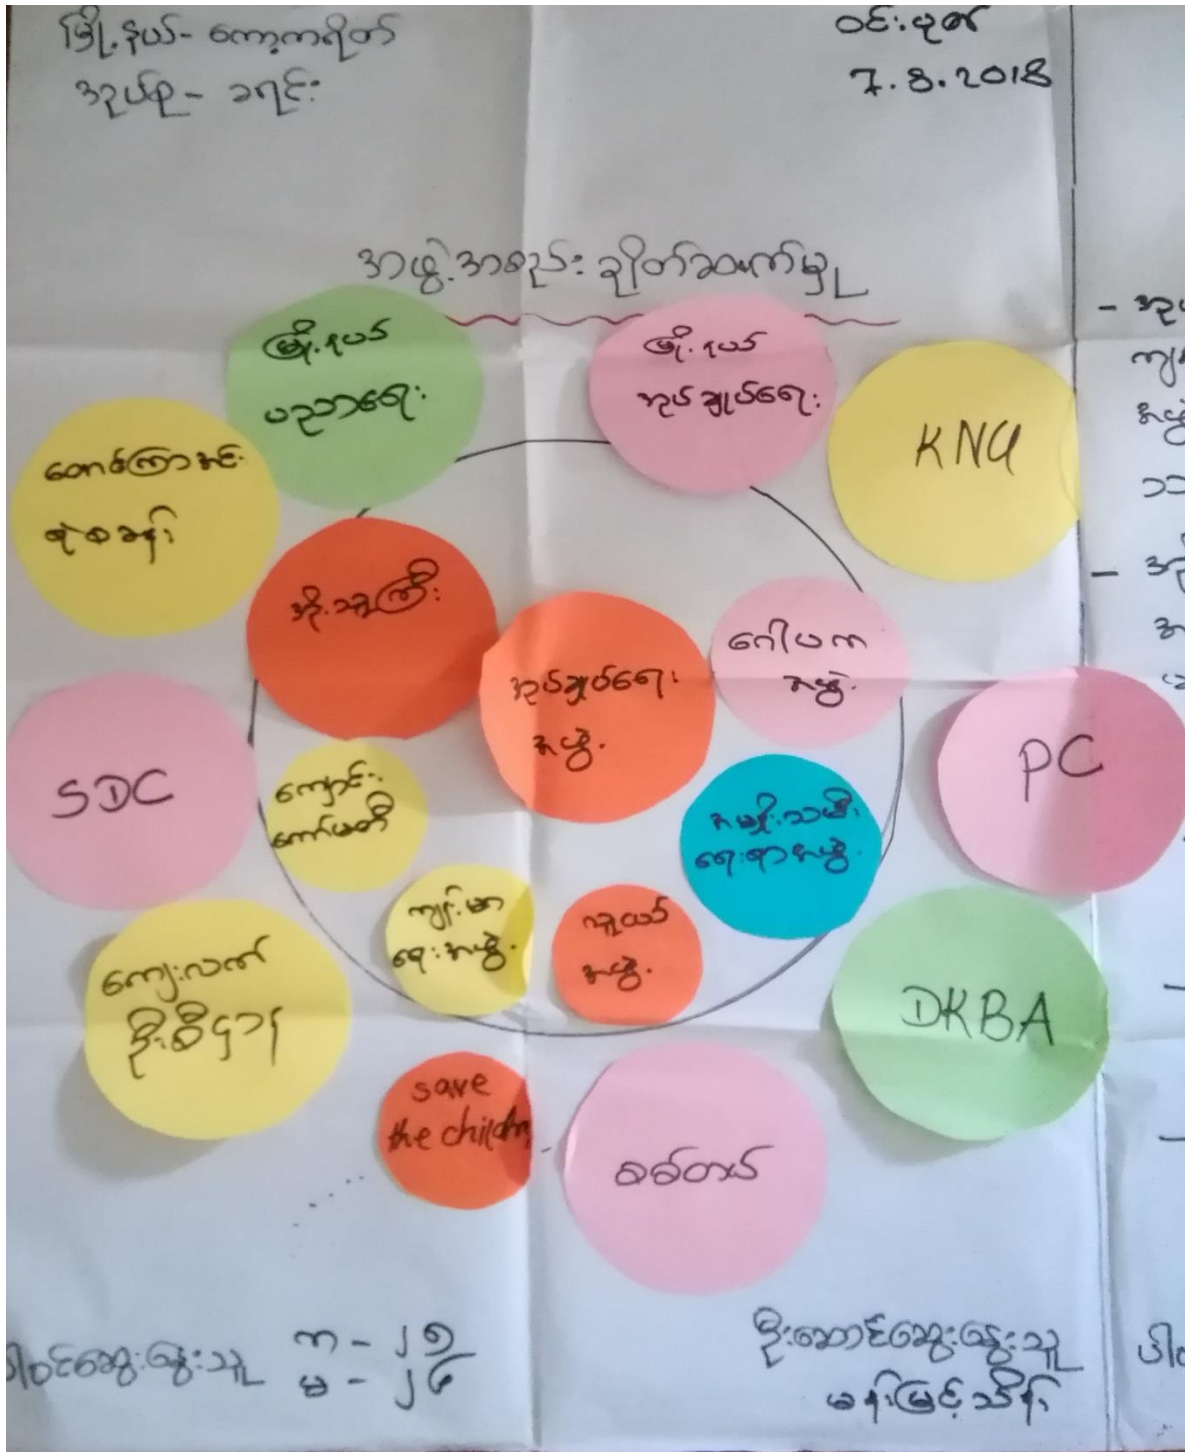 မြို့နယ်- ကော့ကရိတ်
အုပ်စု - ခရင်း
ဝင်းပုတ်
7.8.2018
အဖွဲ့အစည်း ချိတ်ဆက်မှု
မြို့နယ်
ပညာရေး
မြို့နယ်
အုပ်ချုပ်ရေး
KNU
တောင်ကြာအင်း
ရဲစခန်း
အိုးသူကြီး
အုပ်ချုပ်ရေး
အဖွဲ့
ဂေါပက
အဖွဲ့
SDC
ကျောင်း
ကော်မတီ
PC
အမျိုးသမီး
ရေးရာအဖွဲ့
ကျန်းမာ
ရေးအဖွဲ့
လူငယ်
အဖွဲ့
ကျေးလက်
ဦးစီးဌာန
DKBA
save
the children
စစ်တပ်
ပါဝင်ဆွေးနွေးသူ
ကျ - ၂၅
မ - ၂၆
ဦးဆောင်ဆွေးနွေးသူ
မန်းမြင့်သိန်း